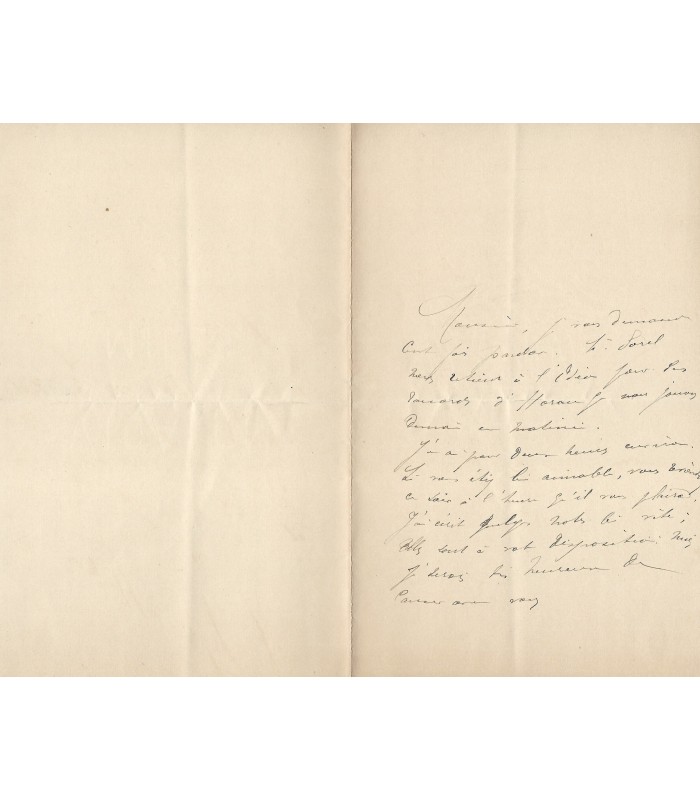 Monsieur, je vous demande
cent fois pardon. M. Sorel
nous retient à l'Odéon pour les
d'Horace que nous jouons
demain en matinée.
J'en ai pour deux heures environ.
Si vous étiez bien aimable, vous
ce soir à l'heure qu'il vous plairait.
J'ai écrit quelques notes bien vite ;
elles sont à votre disposition mais
je serais très heureux de
causer avec vous